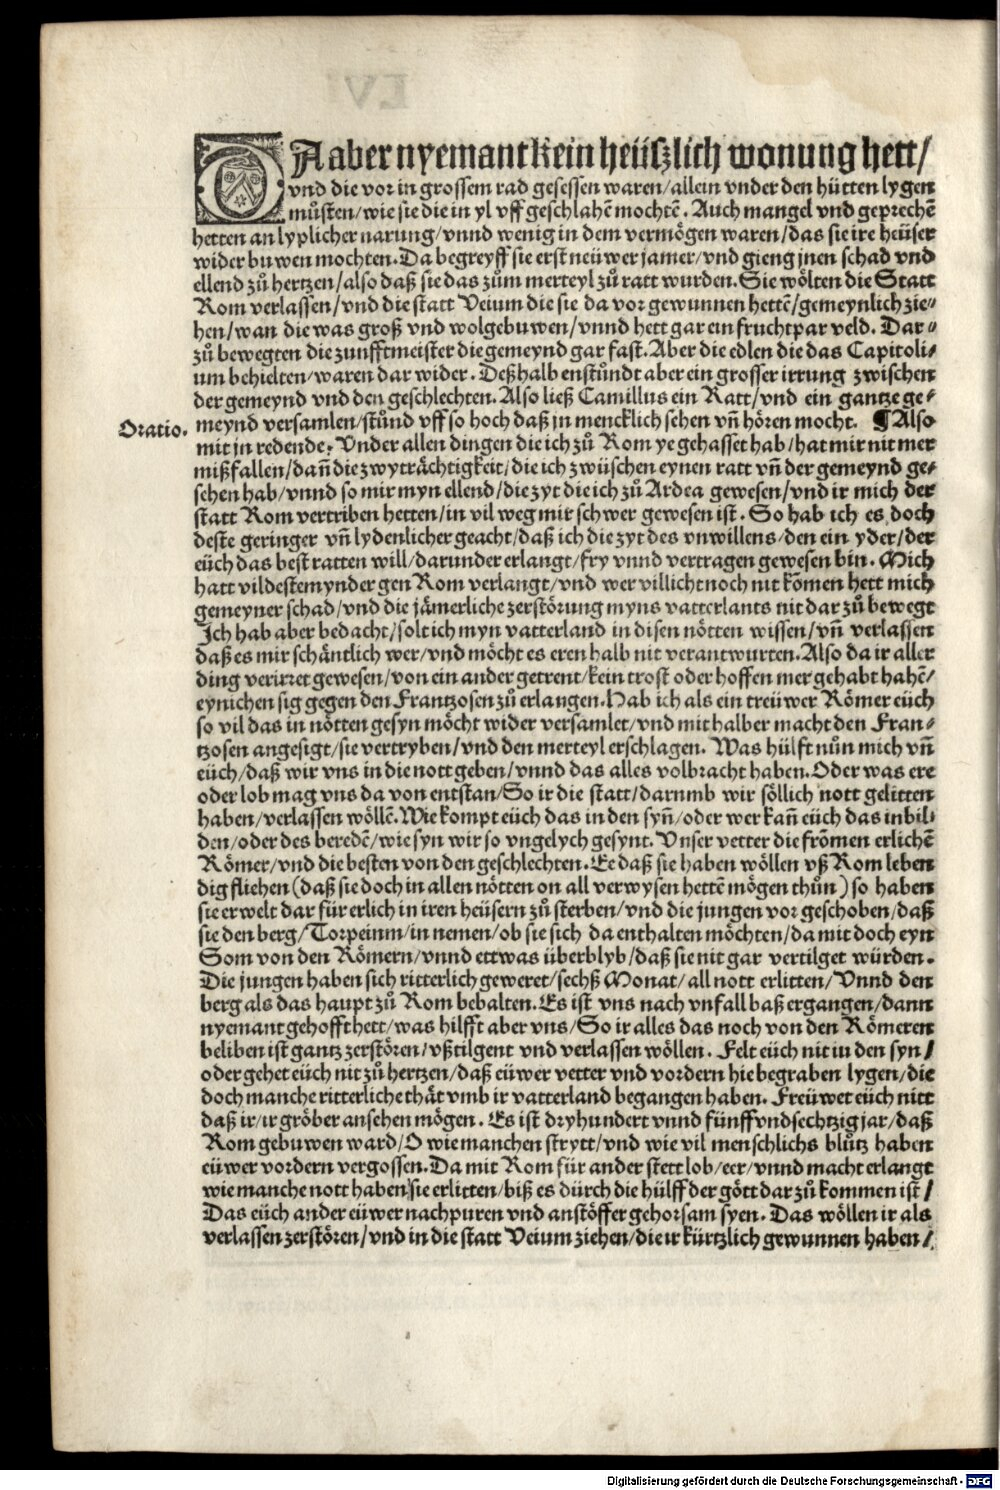 DA aber nyemant kein heüszlich wonung hett/
vnd die vor in grossem rad gesessen waren/allein vnder den hütten lygen
můsten/wie sie die in yl vff geschlahē mochtē. Auch mangel vnd geprechē
hetten an lyplicher narung/vnnd wenig in dem vermögen waren/das sie ire heüser
wider buwen mochten. Da begreyff sie erst neüwer jamer/vnd gieng jnen schad vnd
ellend zů hertzen/also daß sie das zům merteyl zů ratt wurden. Sie wölten die Statt
Rom verlassen/vnd die statt Veium die sie da vor gewunnen hettē/gemeynlich zie⸗
hen/wan die was groß vnd wolgebuwen/vnnd hett gar ein fruchtpar veld. Dar⸗
zů bewegten die zunfftmeister die gemeynd gar fast. Aber die edlen die das Capitoli⸗
um behielten/waren dar wider. Deßhalb enstůndt aber ein grosser irrung zwischen
der gemeynd vnd den geschlechten. Also ließ Camillus ein Ratt/vnd ein gantze ge⸗
meynd versamlen/stůnd vff so hoch daß jn mencklich sehen vñ hören mocht. ¶ Also
Oratio.
mit jn redende. Vnder allen dingen die ich zů Rom ye gehasset hab/hat mir nit mer
mißfallen/dañ die zwyträchtigkeit/die ich zwüschen eynen ratt vñ der gemeynd ge⸗
sehen hab/vnnd so mir myn ellend/die zyt die ich zů Ardea gewesen/vnd ir mich der
statt Rom vertriben hetten/in vil weg mir schwer gewesen ist. So hab ich es doch
deste geringer vñ lydenlicher geacht/daß ich die zyt des vnwillens/den ein yder/der
eüch das best ratten will/darunder erlangt/fry vnnd vertragen gewesen bin. Mich
hatt vil destemynder gen Rom verlangt/vnd wer villicht noch nit kōmen hett mich
gemeyner schad/vnd die jämerliche zerstörung myns vatterlants nit dar zů bewegt
Ich hab aber bedacht/solt ich myn vatterland in disen nötten wissen/vñ verlassen
daß es mir schäntlich wer/vnd möcht es eren halb nit verantwurten. Also da ir aller
ding verirret gewesen/von ein ander getrent/kein trost oder hoffen mer gehabt habē/
eynichen sig gegen den Frantzosen zů erlangen. Hab ich als ein treüwer Römer eüch
so vil das in nötten gesyn möcht wider versamlet/vnd mit halber macht den Fran⸗
tzosen angesigt/sie vertryben/vnd den merteyl erschlagen. Was hülft nůn mich vñ
eüch/daß wir vns in die nott geben/vnnd das alles volbracht haben. Oder was ere
oder lob mag vns da von entstan/So ir die statt/darumb wir söllich nott gelitten
haben/verlassen wöllē. Wie kompt eüch das in den syñ/oder wer kañ eüch das inbil⸗
den/oder des beredē/wie syn wir so vngelych gesynt. Vnser vetter die frōmen erlichē
Römer/vnd die besten von den geschlechten. Ee daß sie haben wöllen vß Rom leben
dig fliehen (daß sie doch in allen nötten on all verwysen hettē mögen thůn) so haben
sie erwelt dar für erlich in iren heüsern zů sterben/vnd die jungen vor geschoben/daß
sie den berg/Torpeium/in nemen/ob sie sich da enthalten möchten/da mit doch eyn
Som von den Römern/vnnd ettwas überblyb/daß sie nit gar vertilget würden.
Die jungen haben sich ritterlich geweret/sechß Monat/all nott erlitten/Vnnd den
berg als das haupt zů Rom behalten. Es ist vns nach vnfall baß ergangen/dann
nyemant gehofft hett/was hilfft aber vns/So ir alles das noch von den Römeren
beliben ist gantz zerstören/vßtilgent vnd verlassen wöllen. Felt eüch nit in den syn/
oder gehet eüch nit zů hertzen/daß eüwer vetter vnd vordern hie begraben lygen/die
doch manche ritterliche thät vmb ir vatterland begangen haben. Freüwet eüch nitt
daß ir/ir gröber ansehen mögen. Es ist dryhundert vnnd fünffvndsechtzig jar/daß
Rom gebuwen ward/O wie manchen strytt/vnd wie vil menschlichs blůtz haben
eüwer vordern vergossen. Da mit Rom für ander stett lob/eer/vnnd macht erlangt
wie manche nott haben sie erlitten/biß es dürch die hülff der gött dar zů kommen ist/
Das eüch ander eüwer nachpuren vnd anstösser gehorsam syen. Das wöllen ir als
verlassen zerstören/vnd in die statt Veium ziehen/die ir kürtzlich gewunnen haben/
Digitalisierung gefördert durch die Deutsche Forschungsgemeinschaft - DFG